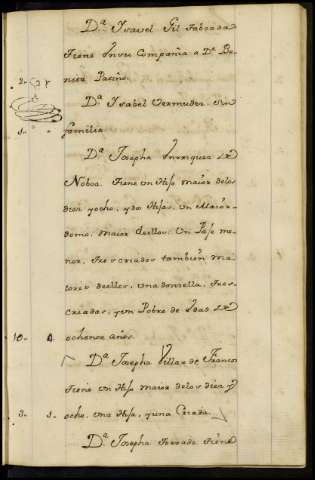 D.ª Ysavel Gil Taboada
tiene en su Compañia a D.ª Be-
2-
nita Patiño.
D.ª Ysabel Vermudez Sin
1-
familia
D.ª Josepha Enrriquez de
Noboa. tiene un Hijo maior delos
diez yocho, ydos Hijas, un Maior-
domo, maior deellos, Un Paje me-
nor, tres criados tambien ma-
iores deellos, una donzella, tres
criadas, yun Pobre de hedad de
10- 1.
ochenta años.
D.ª Josepha Villar de Francos
tiene un Hijo maior delos diez y
3- 1-
ocho, una Hija, yuna Criada.
D.ª Josepha Taboada tiene